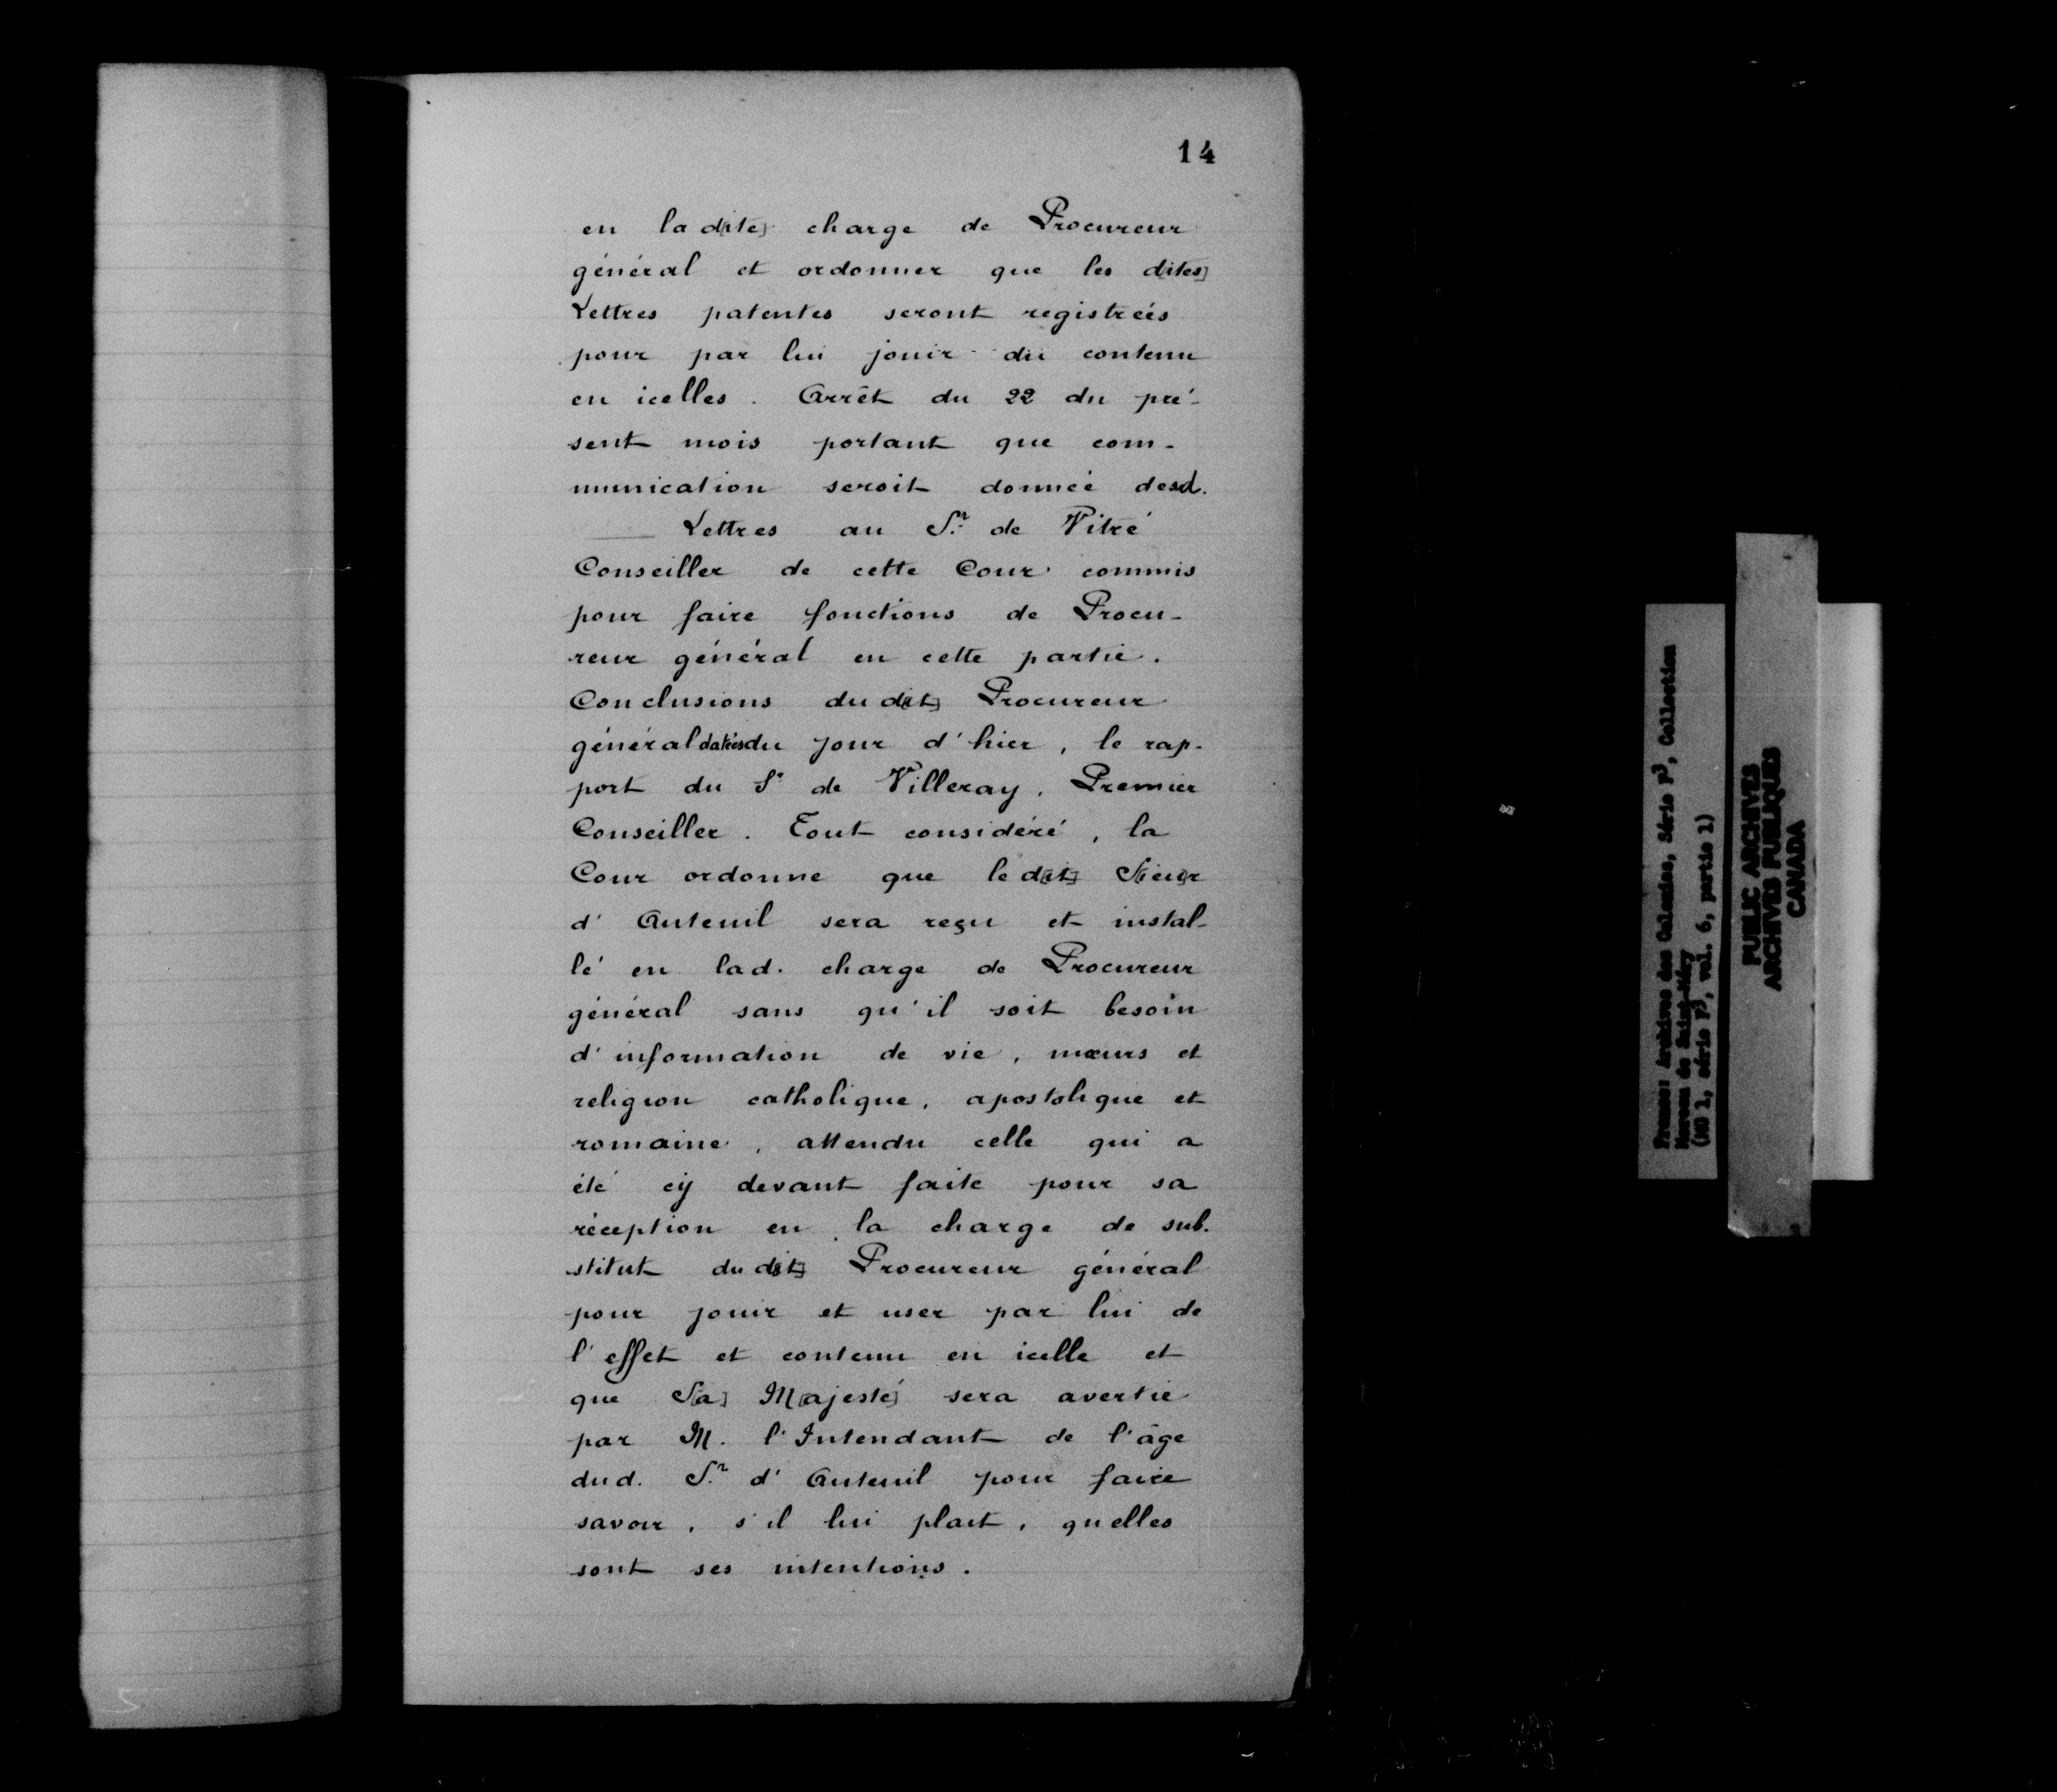 14
en la d[ite] charge de Procureur
général et ordonner que les d[ites]
Lettres patentes seront registrées
pour par lui jouir du contenu
en icelles. Arrêt du 22 du pré-
sent mois portant que com-
munication seroit donnée desd.
Lettres au Sr. de Vitré
Conseiller de cette Cour commis
pour faire fonctions de Procu-
reur général en cette partie.
Conclusions du d[it] Procureur
général datées du jour d'hier, le rap-
port du Sr de Villeray, Premier
Conseiller. Tout considéré, la
Cour ordonne que le d[it] S[ieu]r
d'Auteuil sera reçu et instal-
lé en lad. charge de Procureur
général sans qu'il soit besoin
d'information de vie, mœurs et
religion catholique, apostolique et
romaine, attendu celle qui a
été cÿ devant faite pour sa
réception en la charge de sub-
stitut du d[it] Procureur général
pour jouir et user par lui de
l'effet et contenu en icelle et
que S[a] M[ajesté] sera avertie
par M. l'Intendant de l'âge
dud. Sr. d'Auteuil pour faire
savoir, s'il lui plait, quelles
sont ses intentions.
France: Archives des Colonies, Série F3, Collection
Moreau de Saint-Méry
(MG 1, série F3, vol. 6, partie 1)
PUBLIC ARCHIVES
ARCHIVES PUBLIQUES
CANADA